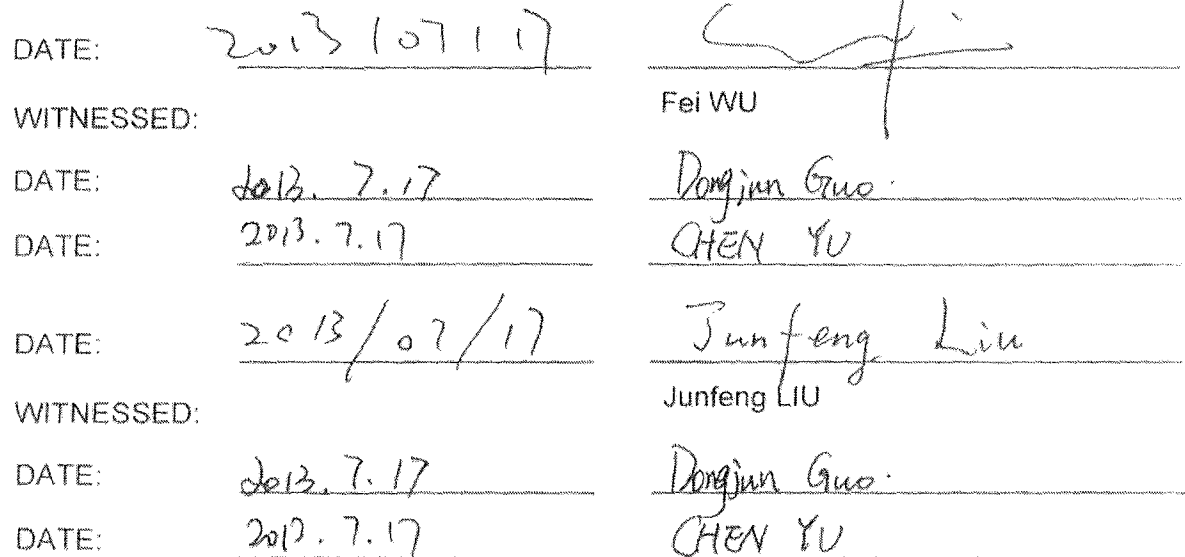 DATE: 2013/07/17
Fei WU
WITNESSED:
DATE: 2013. 7.17 Dongjun Guo.
DATE: 2013.7.17 CHEN YU
DATE: 2013/07/17 Junfeng Liu
Junfeng LIU
WITNESSED:
DATE: 2013. 7.17 Dongjun Guo.
DATE: 2013.7.17 CHEN YU